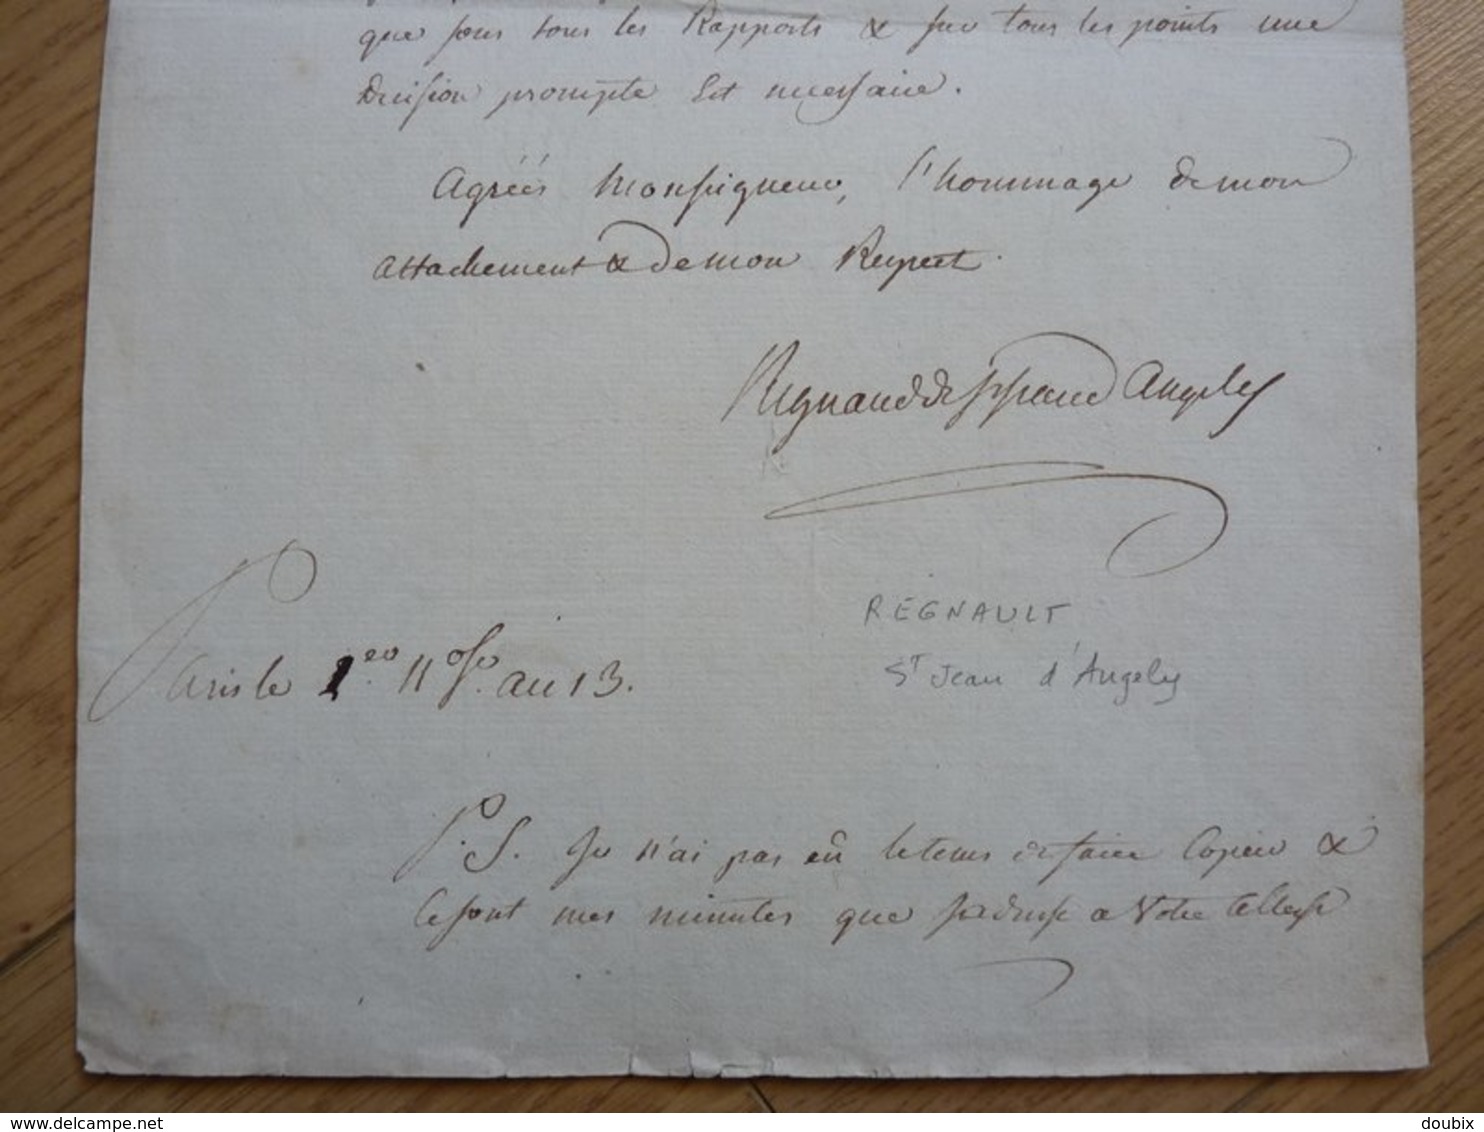 que sous tous les Rapports & sur tous les points une
Décision prompte Est necessaire.
Agréés Monseigneur, l'hommage de mon
attachement & de mon Respect.
Regnaud de St Jean d Angely
REGNAULT
St Jean d'Angely
Paris le 1er. 11re. an 13.
P.S. Je n'ai pas eû le tems de faire Copier &
Ce sont mes minutes que j'adresse a Votre Altesse
delcampe.net
doubix